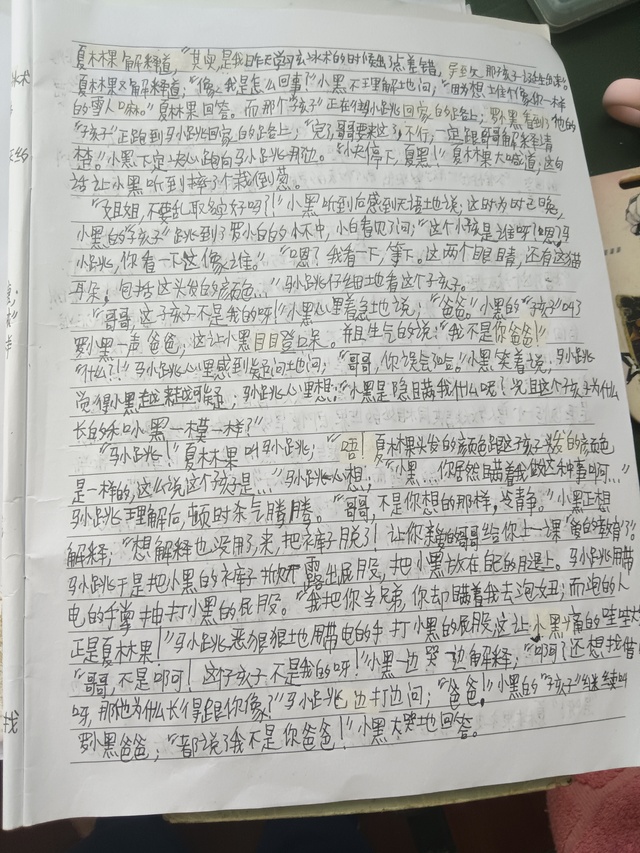 夏林果解释道，"其实，是我昨天学习玄冰术的时候出了点差错，
夏林果又解释道；"像 我是怎么回事？"小黑不理解地问；"因为想堆个像你一样
的雪人嘛。"夏林果回答。而那个"孩子"正在往马小跳回家的路上；罗小黑看到他的
"孩子"正跑到马小跳回家的路上；"完了，哥哥要来这 不行，一定跟哥哥解释清
楚。"小黑下定决心跑向马小跳那边。"小 停下，夏黑！"夏林果大喊道；这句
话让小黑听到摔了个栽倒葱。
"姐姐，不要乱取名字好吗？！"小黑听到后感到无语地说，这时为时已晚，
小黑的"孩子"跳到了罗小白的怀中，小白看见了问；"这个小孩是谁呀？嗯？马
小跳，你看一下这像谁。""嗯？我看一下，等下。这两个眼睛，还有这猫
耳朵，包括这头发的颜色…"马小跳仔细地看这个子亥子。
"哥哥，这子孩子不是我的呀！"小黑心里着急地说；"爸爸。"小黑的"孩子"叫了
罗小黑一声爸爸，这让小黑目目登口呆。并且生气的说："我不是你爸爸！"
"什么？！"马小跳心里感到疑问地问；"哥哥，你误会 。"小黑笑着说，马小跳
觉得小黑越来越可疑；马小跳心里想；"小黑是隐目瞒我什么呢？况且这个子亥子为什么
长的和小黑一模一样？"
"马小跳！"夏林果叫马小跳；"唔！夏林果头发的颜色跟这子孩子头发的颜色
是一样的，这么说这个孩子是…"马小跳心想；"小黑…你居然目瞒着我做这种事啊…"
马小跳理解后，顿时杀气腾腾。"哥哥，不是你想的那样，冷静。"小黑正想
解释；"想解释也没用了，来，把裤子脱了！让你亲爱的哥哥给你上一课 教育'！"
马小跳于是把小黑的裤子 露出屁股，把小黑放在自己的月退上。马小跳用带
电的手掌抽打小黑的屁股。"我把你当兄弟，你却目瞒着我去泡妞；而泡的人
正是夏林果！"马小跳恶狠狠土地用带电的手打小黑的屁股，这让小黑痛的哇哇大
"哥哥，不是啊！这子孩子不是我的呀！"小黑一边哭一边解释；"啊？还想找借
呀，那他为什么长得跟你像？"马小跳边打边问；"爸爸！"小黑的"孩子"继续叫
罗小黑爸爸；"都说了我不是你爸爸！"小黑大哭土地回答。